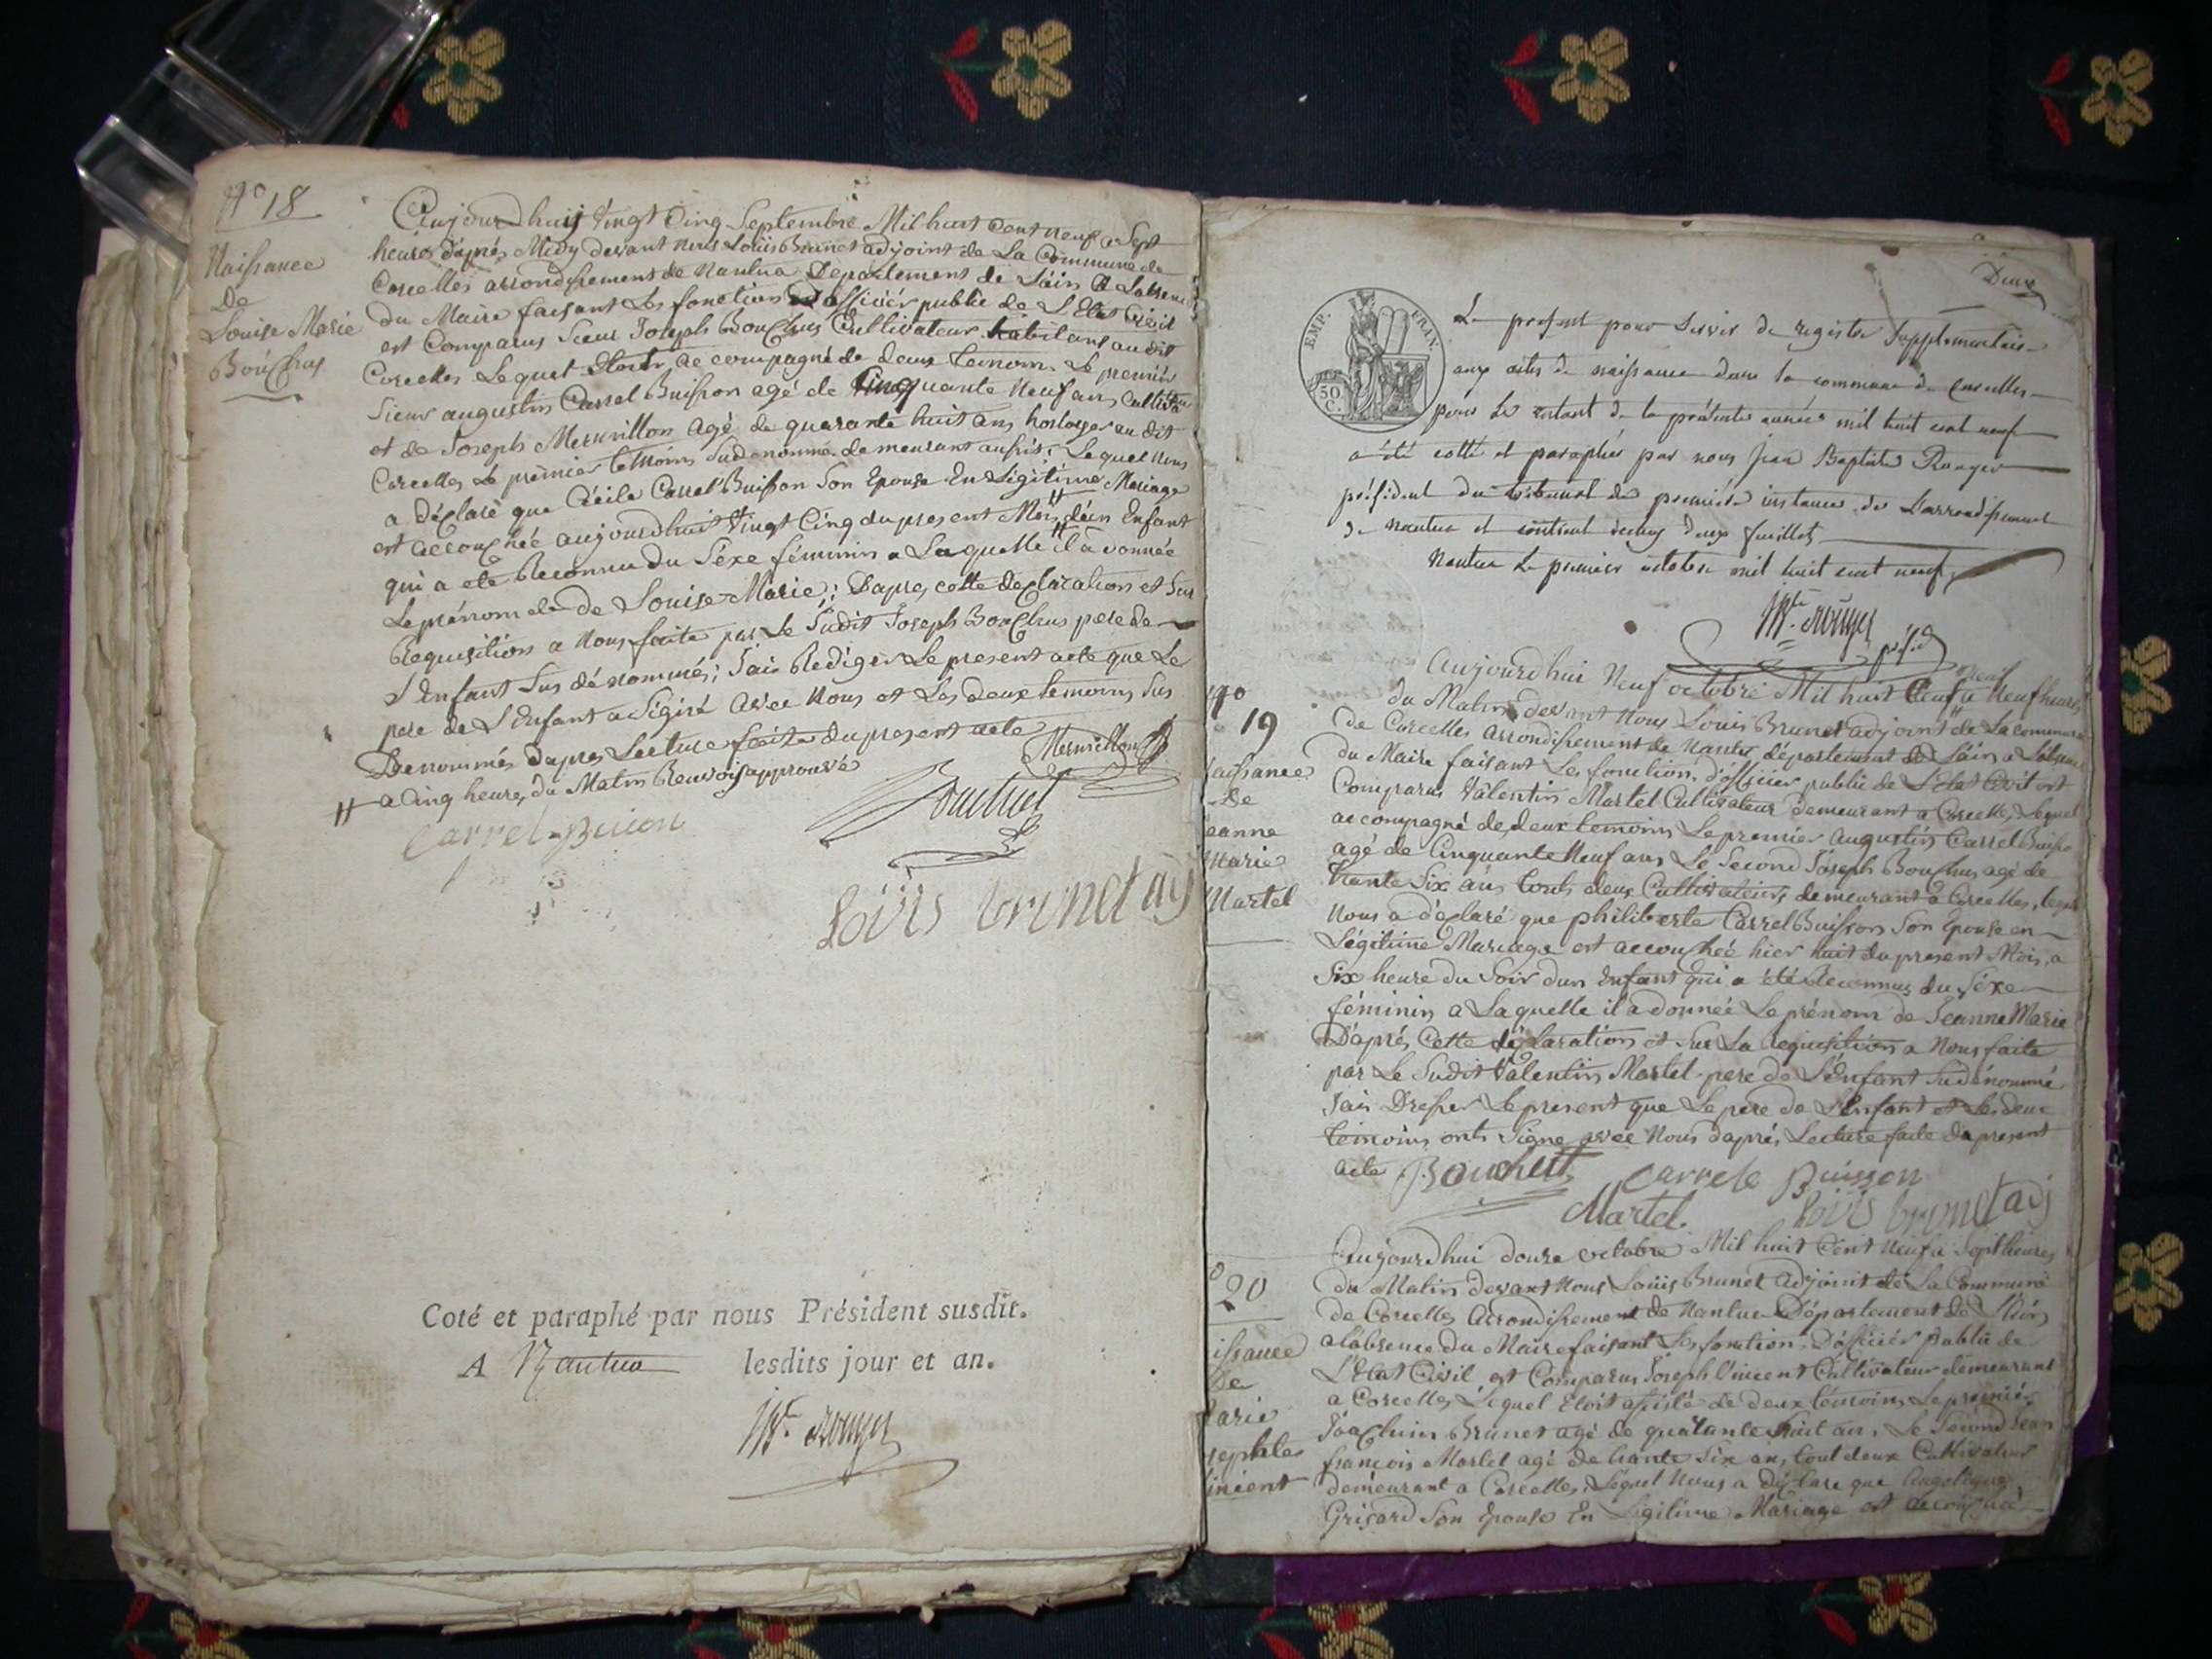 N° 18
Naissance
De
Louise Marie
Bouchus
Aujourdhuij Vingt Cinq Septembre Mil huit Cent neuf a Sept
heures d'aprés Midy devant nous Louis Brunet adjoint de La Commune de
Corcelles arrondissement de Nantua Departement de Lain A Labsence
du Maire faisant Les fonctions d'officiér public de L'Etat Civil
est Comparus Sieur Joseph Bouchus Cultivateur habitant au dit
Corcelles Lequel Etoit accompagné de deux temoins Le premiér
Sieur augustin Carrel Buisson agé de Cinquante Neuf ans Cultivateur
et de Joseph Mermillon agé de quarante huit ans horloger au dit
Corcelles Le premier temoins Sudenommé demeurant aussis; Lequel nous
a Déclaré que Cécile Carrel Buisson Son Epouse En Légitime Mariage
est accouchée aujourdhuit Vingt Cinq du present Mois d'un Enfant
qui a eté Reconnu du Séxe féminin a Laquelle il a donnée
Le prénom de de Louise Marie; Dapres cette declaration et Sur
Requisition a Nous faite par Le Sudit Joseph Bouchus pere de
L'Enfant Sus dénommés; J'ais Rediger Le present acte que Le
pere de L'Enfant a Signé Avec Nous et Les deux temoins Sus
Denommés dapres Lecture faite du present acte
a Cinq heure, du Matin Renvois approuvé
Mermillon
Bouchut
Carrel Buison
Louis brunet adj
Coté et paraphé par nous Président susdit.
A Nantua lesdits jour et an.
Rouyer
Deux
EMP. FRAN.
50
C.
Le present pour Servir de registre Supplementaire
aux actes de naissance dans la commune de Corcelles
pour le restant de la présente année mil huit cent neuf
a été cotté et paraphé par nous Jean Baptiste Rouyer
président du tribunal de premiére instance de L'arrondissement
de nantua et contient deux feuillets
Nantua Le premier octobre mil huit cent neuf
Rouyer
N°
19
aissance
De
eanne
Marie
Martel
Aujourdhui Neuf octobre Mil huit Cent neuf a Neuf heures
du Matin devant Nous Louis Brunet adjoint de La commune
de Corcelles arrondissement de Nantua département de Láin a Labsence
du Maire faisant Les fonctions d'officier public de L'Etat Civil est
Comparus Valentin Martel Cultivateur demeurant a Corcelles, Lequel
accompagné de deux temoins Le premier Augustin Carrel Buisson
agé de Cinquante Neuf ans Le Second Joseph Bouchus agé de
trante Six ans touts deux Cultivateurs demeurant a Corcelles, lequel
Nous a déclaré que philiberte Carrel Buisson Son Epouse en
Légitime Mariage est accouchée hier huit du present Mois, a
Six heure du Soir dun Enfant qui a été Reconnus du Séxe
féminin a Laquelle il a donnée Le prénom de Jeanne Marie
D'aprés Cette déclaration et Sur La Requisition a Nous faite
par Le Sudit Valentin Martel pere de L'Enfant Sudénommé
Jais Dresser Le present que Le pere de L'Enfant et Les deux
temoins onts Signe avec Nous d'aprés Lecture faite du present
acte Bouchut Carrele Buisson
Martel. Louis brunet adj
20
issance
De
arie
sephte
incent
Aujourdhui douze octobre Mil huit Cent Neuf a Sept heures
du Matin devant Nous Louis Brunet Adjoint de La Commune
de Corcelles Arrondissement de Nantua Département de L'Ain
a Labsence du Maire faisant Les fonction D'officiér Public de
L'Etat Civil est Comparus Joseph Vincent Cultivateur demeurant
a Corcelles, Lequel Etoit assisté de deux témoins, Le premier
Joachim Brunet agé de quarante huit an, Le Second Jean
françois Martel agé de trante Six ans, tout deux Cultivateur
demeurant a Corcelles, Lequel Nous a Déclare que Angelique
Grisard Son Epouse En Légitime Mariage est accouchée